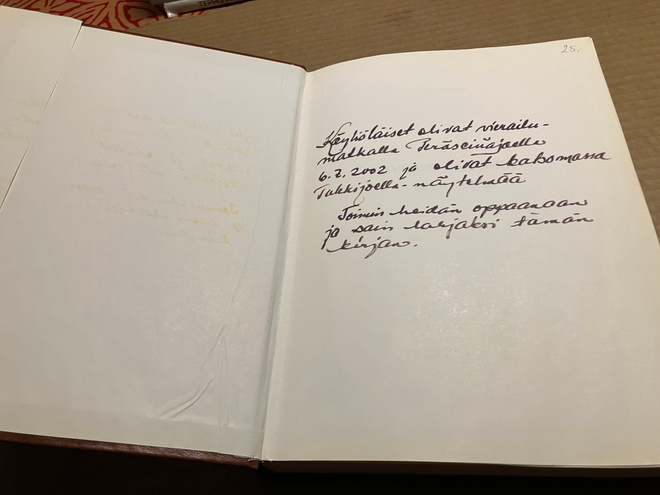 25,-
Käyliöläiset olivat vierailu-
matkalla Peräseinäjoella
6.2.2002 ja olivat katsomassa
Tukkijoella-näytelmää
Toimin heidän oppaanaan
ja sain lahjaksi tämän
kirjan.